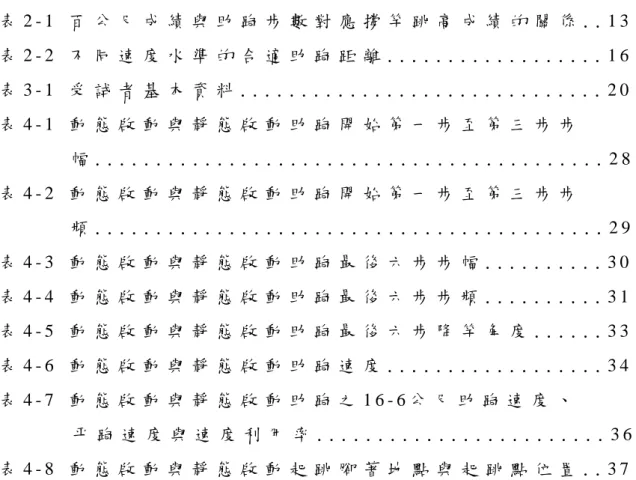 表 2-1 百公尺成績與助跑步數對應撐竿跳高成績的關係..13
表 2-2 不同速度水準的合適助跑距離..................16
表 3-1 受試者基本資料..............................20
表 4-1 動態啟動與靜態啟動助跑開始第一步至第三步步
幅..........................................28
表 4-2 動態啟動與靜態啟動助跑開始第一步至第三步步
頻..........................................29
表 4-3 動態啟動與靜態啟動助跑最後六步步幅..........30
表 4-4 動態啟動與靜態啟動助跑最後六步步頻..........31
表 4-5 動態啟動與靜態啟動助跑最後六步降竿角度......33
表 4-6 動態啟動與靜態啟動助跑速度..................34
表 4-7 動態啟動與靜態啟動助跑之 16-6公尺助跑速度、
平跑速度與速度利用率........................36
表 4-8 動態啟動與靜態啟動起跳腳著地點與起跳點位置..37